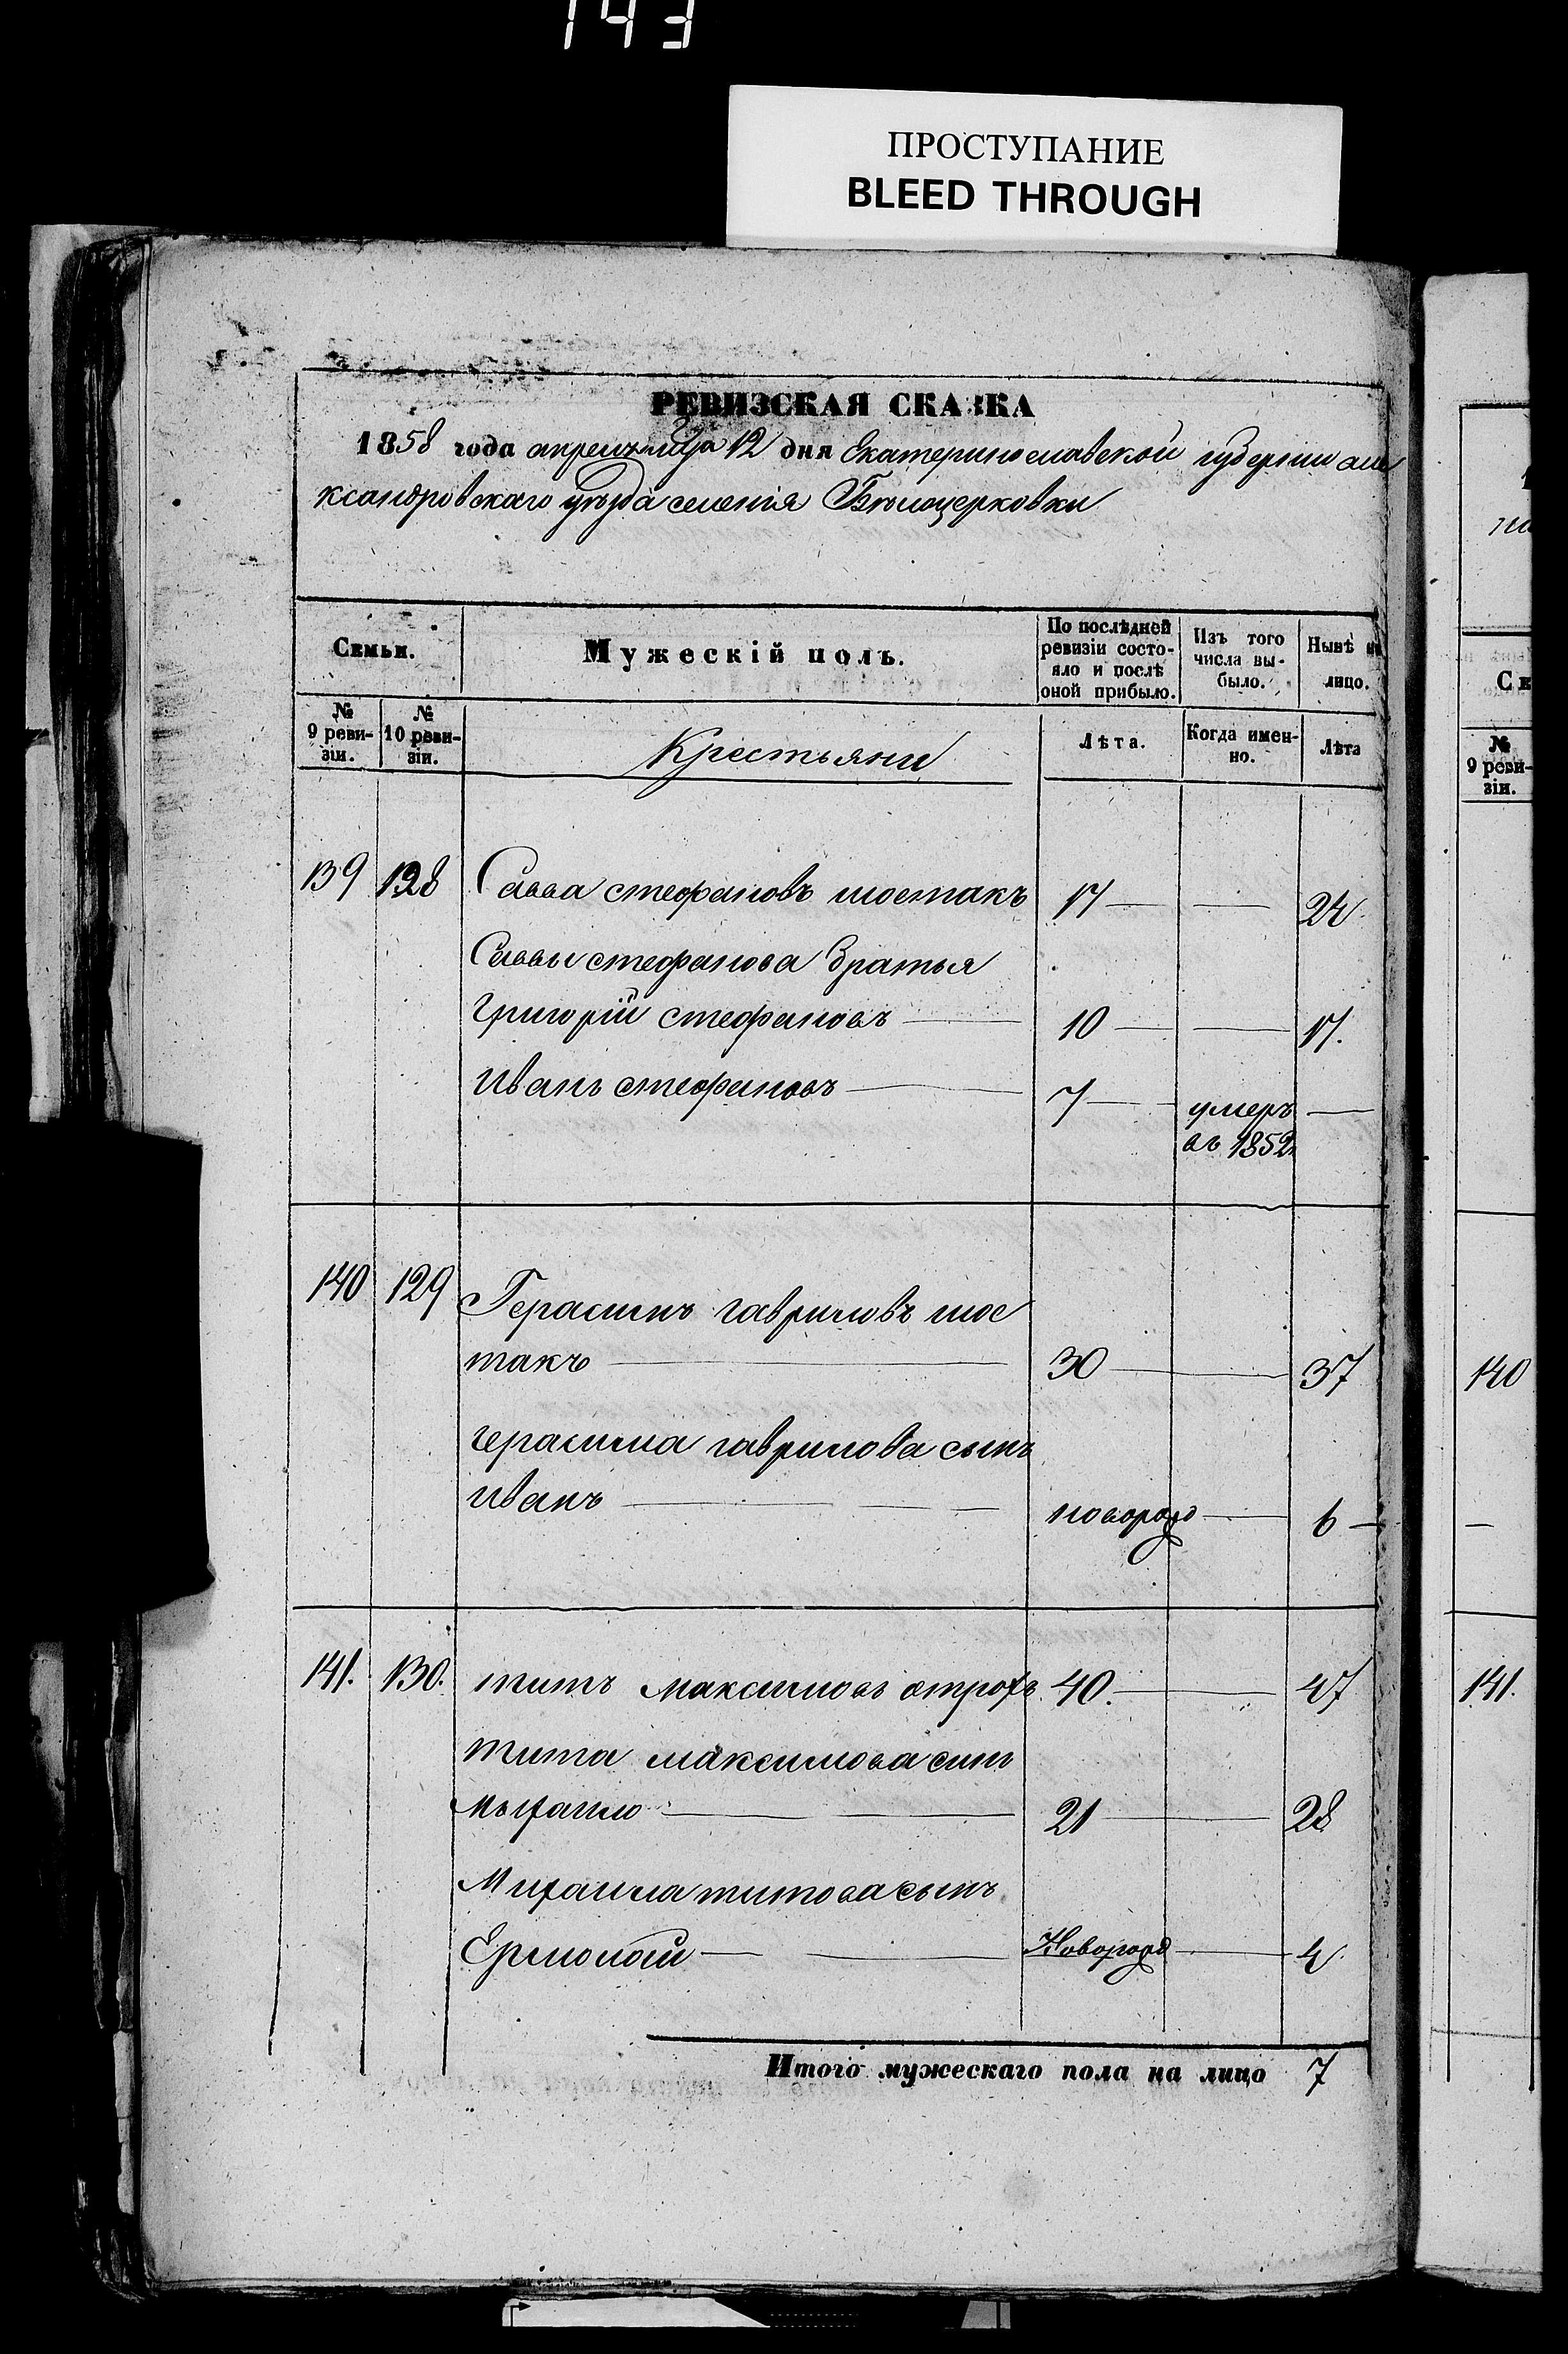 143
ПРОСТУПАНИЕ
BLEED THROUGH
РЕВИЗСКАЯ СКАЗКА
1858 года апреля мца 12 дня Екатеринославской губерніи але
ксандровскаго уѣзда селенія Бѣлоцерковки
Семьи.
Мужескій полъ.
По послѣдней
ревизіи состо-
яло и послѣ
оной прибыло.
Изъ того
числа вы-
было.
Нынѣ на
лицо.
№
9 реви-
зіи.
№
10 реви-
зіи.
Крестьяни
Лѣта.
Когда имен-
но.
Лѣта
139 128 Савва стефановъ шостакъ 17 — — 24
Саввы стефанова братья
Григорій стефановъ — 10 — — 17.
Иванъ стефановъ — 7 — умеръ —
въ 1852
140 129 Герасимъ гавриловъ шос
такъ — 30 — 37
герасима гаврилова сынъ
Иванъ — — новорозд — 6 —
141. 130. титъ максимовъ 40. — 47
тита максимова синъ
Мыхаило — — 21 — 28
Михаила титова сынъ
Ермолай — — Новорозд — 4
Итого мужескаго пола на лицо 7
на
Се
№
9 реви-
зіи.
140
—
141.